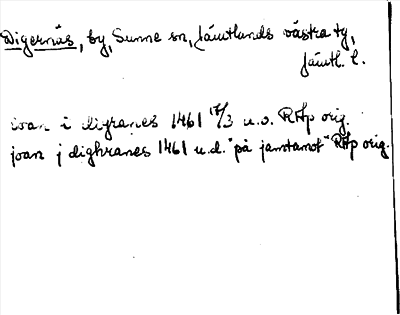 Digernäs, by, Sunne sn, Jämtlands västra tg,
Jämtl. l.
ioan i digranes 1461 17/3 u.o. RHp orig.
joan j dighranes 1461 u.d. "på jamtamot" RHp orig.